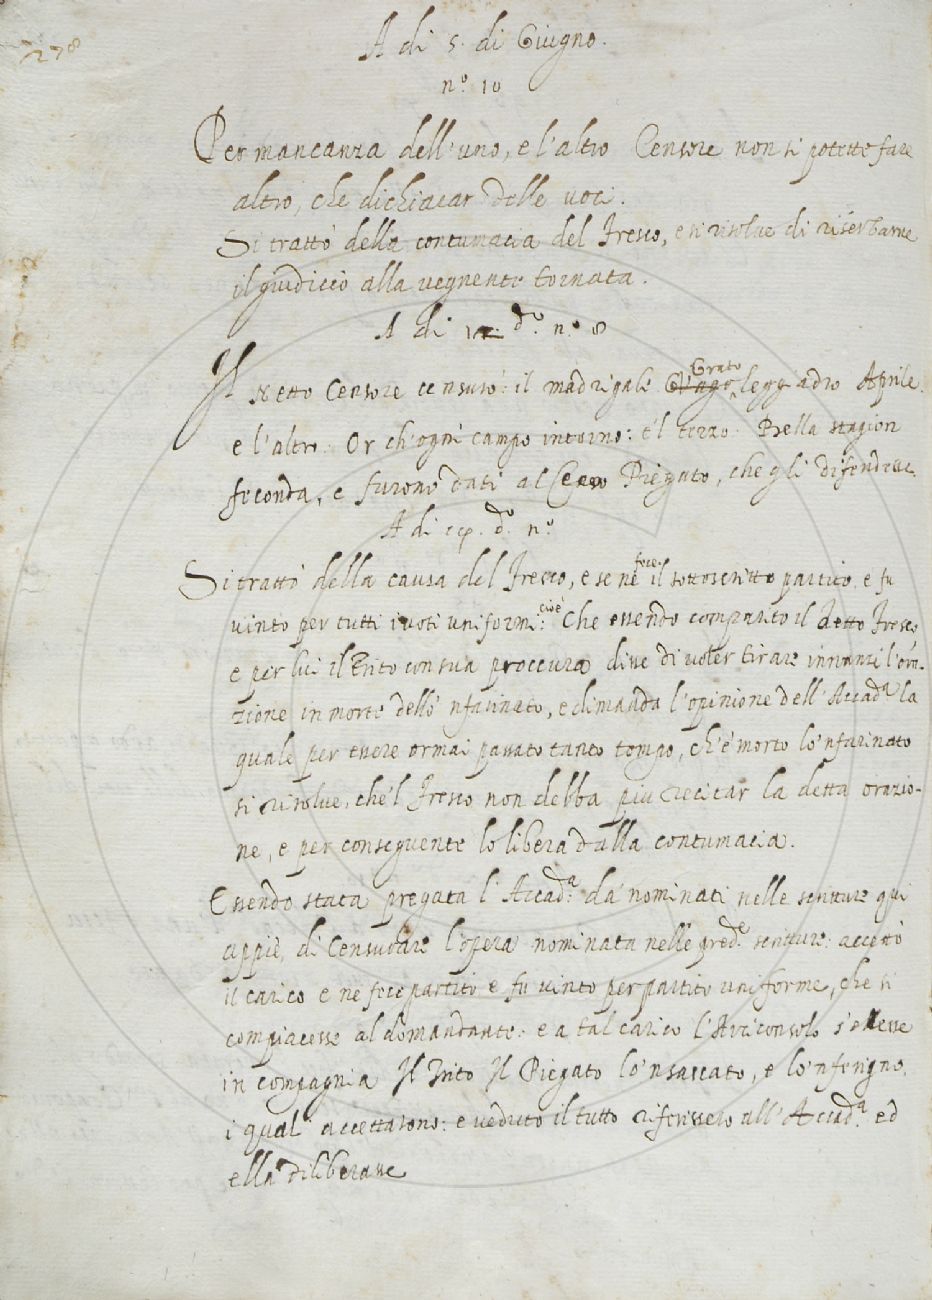 278
A di 5. di Giugno.
n.o 10
Per mancanza dell'uno, e l'altro Censore non si potette fare
altro, che dichiarar delle voci.
Si trattò della contumacia del Fresco, e si risolve di riserbarne
il giudiccio alla vegnente tornata.
A di d.o n.o 8
Il Netto Censore censurò: il madrigale Vago Grato leggiadro Aprile
e l'altro. Or ch'ogni campo intorno: e'l terzo. Bella stagion
feconda, e furono dati al Piegato, che gli difendesse
A di d.o n.o
Si trattò della causa del Fresco, e se ne fece il sottoscritto partito e fu
vinto per tutti i voti uniformi: cioè Che essendo comparito il detto Fresco
e per lui il Trito con sua proccura disse di voler tirare innanzi l'ora-
zione in morte dello 'nfarinato, e dimanda l'opinione dell'Accad.a la
quale per essere ormai passato tanto tempo, ch'è morto lo 'nfarinato
si risolve, che'l Fresco non debba più recitar la detta orazio-
ne, e per conseguente lo libera dalla contumacia.
Essendo stata pregata l'Accad.a da' nominati nelle scritture qui
appiè, di Censurare l'opera nominata nelle pred.e scritture: accettò
il carico e ne fece partito e fu vinto per partito uniforme, che si
compiacesse al domandante: e a tal carico l'Arciconsolo s'elesse
in compagnia Il Trito Il Piegato lo 'nsaccato, e lo 'nferigno,
i quali accettarono: e veduto il tutto riferisselo all'Accad.a ed
ella diliberasse